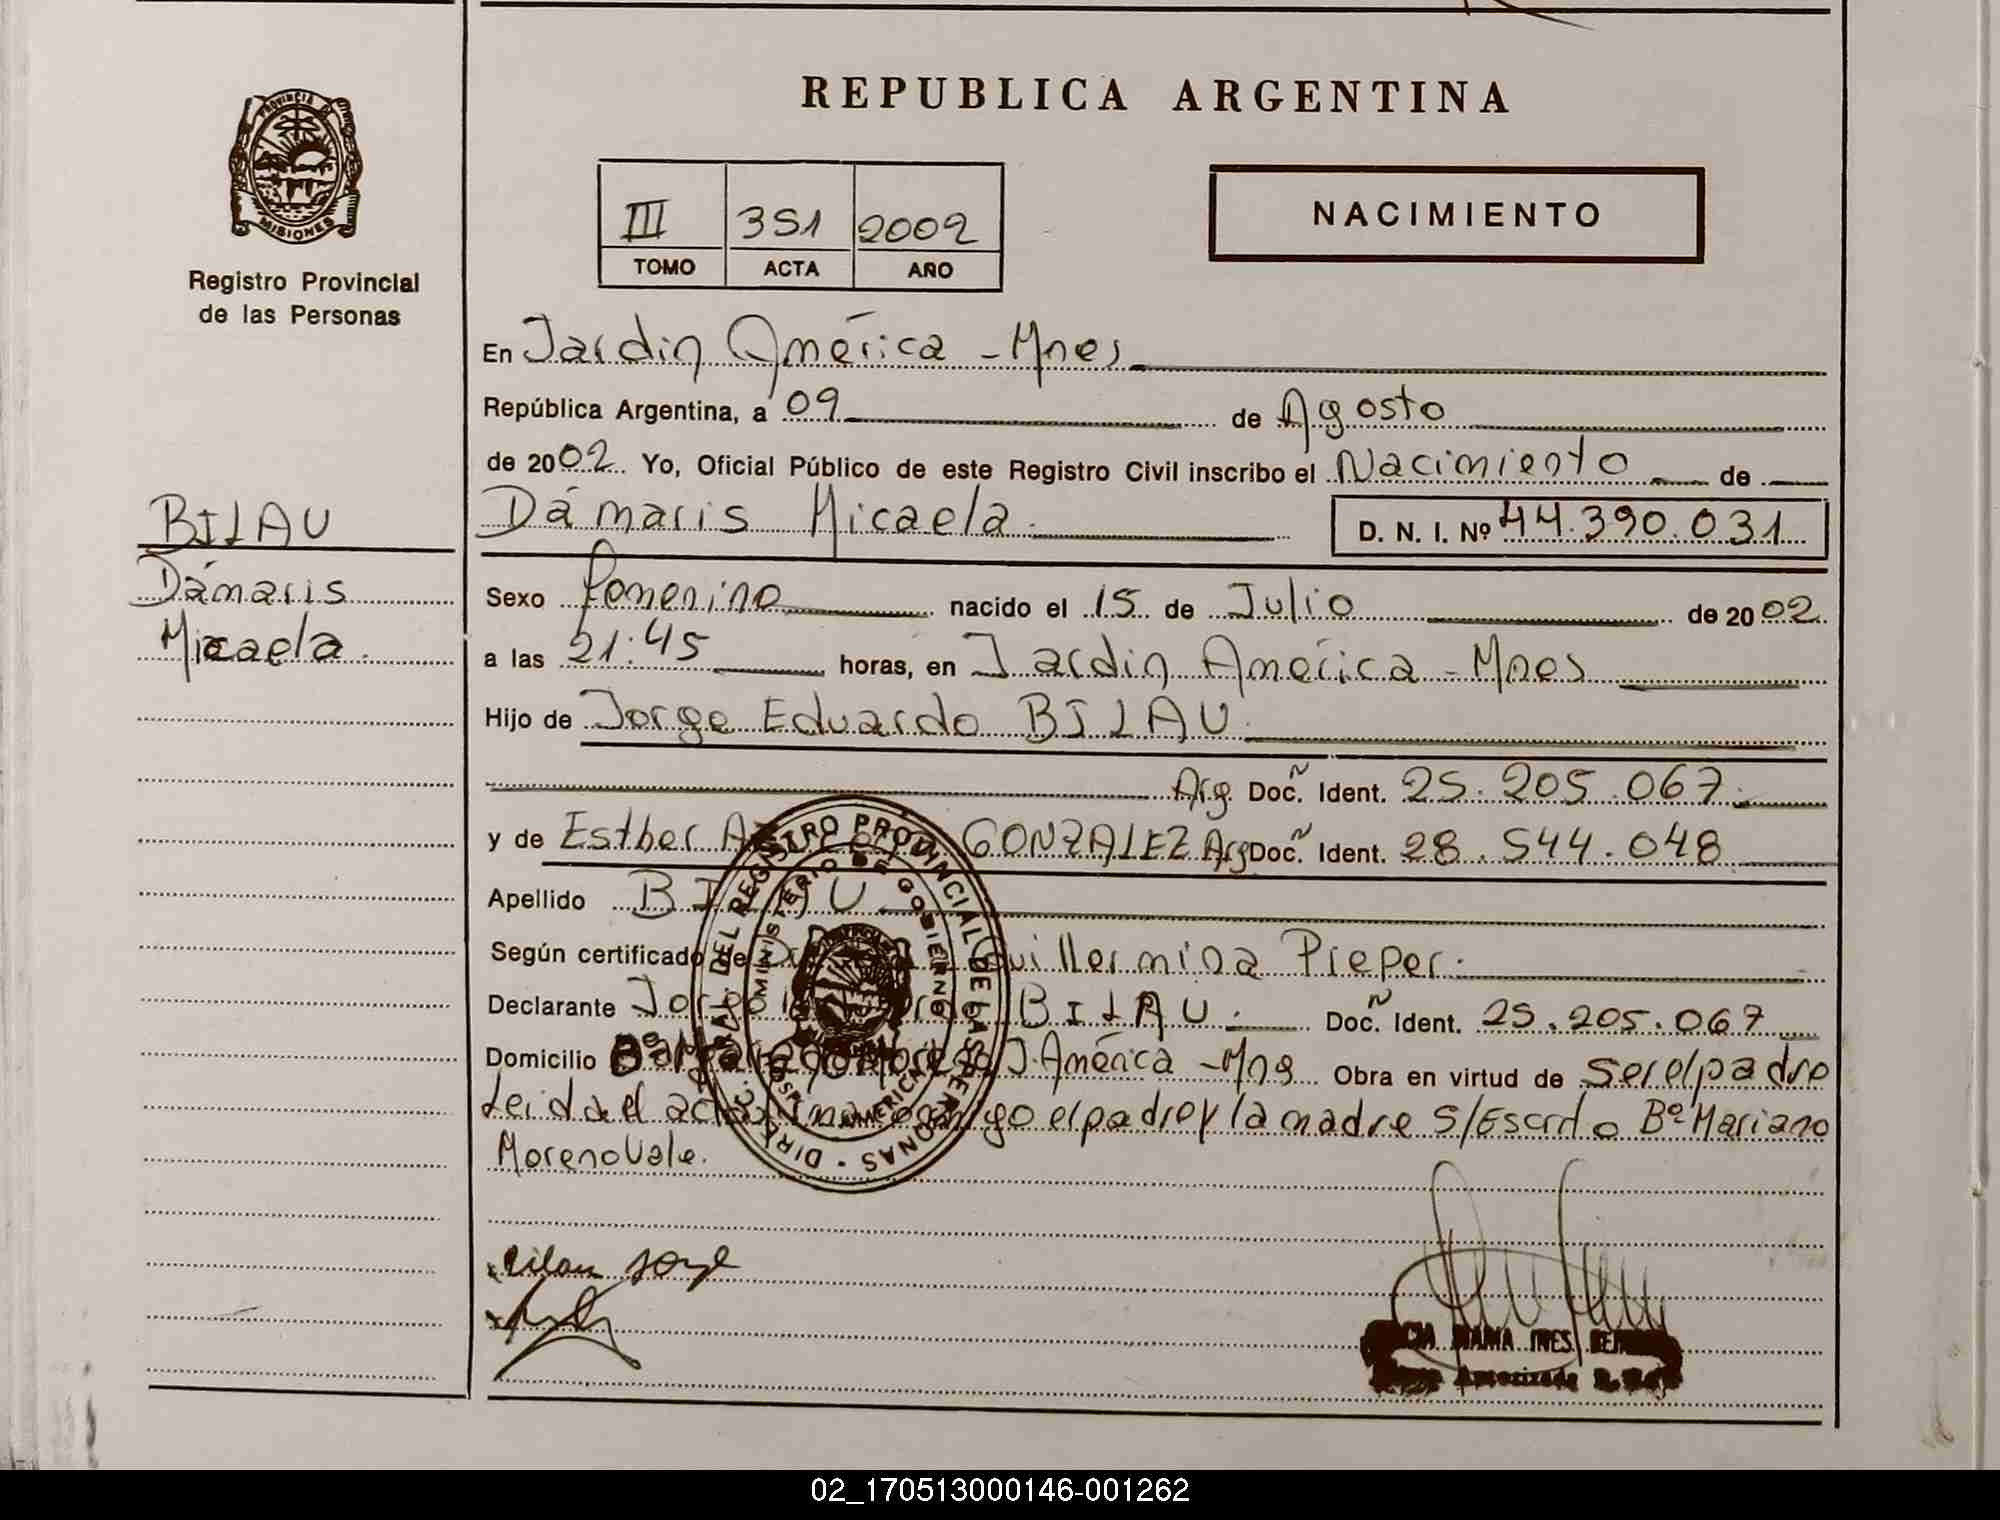 REPUBLICA ARGENTINA
PROVINCIA DE
MISIONES
Registro Provincial
de las Personas
III 351 2002
TOMO ACTA AÑO
NACIMIENTO
En Jardin América - Mnes
República Argentina, a 09 de Agosto
de 2002 Yo, Oficial Público de este Registro Civil inscribo el Nacimiento de
Dámaris Micaela. D. N. I. Nº 44.390.031
BILAU
Dámaris
Micaela.
Sexo femenino nacido el 15 de Julio de 2002
a las 21:45 horas, en Jardin América - Mnes
Hijo de Jorge Eduardo BILAU
Arg. Doc. Ñ Ident. 25.205.067.
y de Esther GONZALEZ Arg Doc. Ñ Ident. 28.544.048
Apellido BILAU
Según certificado de Guillermina Preper.
Declarante Jorge BILAU. Doc. Ñ Ident. 25.205.067
Domicilio Bº J. América - Mns Obra en virtud de ser el padre
Leida el acta el padre y la madre S/Escrito Bº Mariano
Moreno Vale.
DIR. GRAL. DEL REGISTRO PROVINCIAL DE LAS PERSONAS
MINISTERIO DE GOBIERNO
Bilau Jorge
MARIA INES
Autorizada
02_170513000146-001262